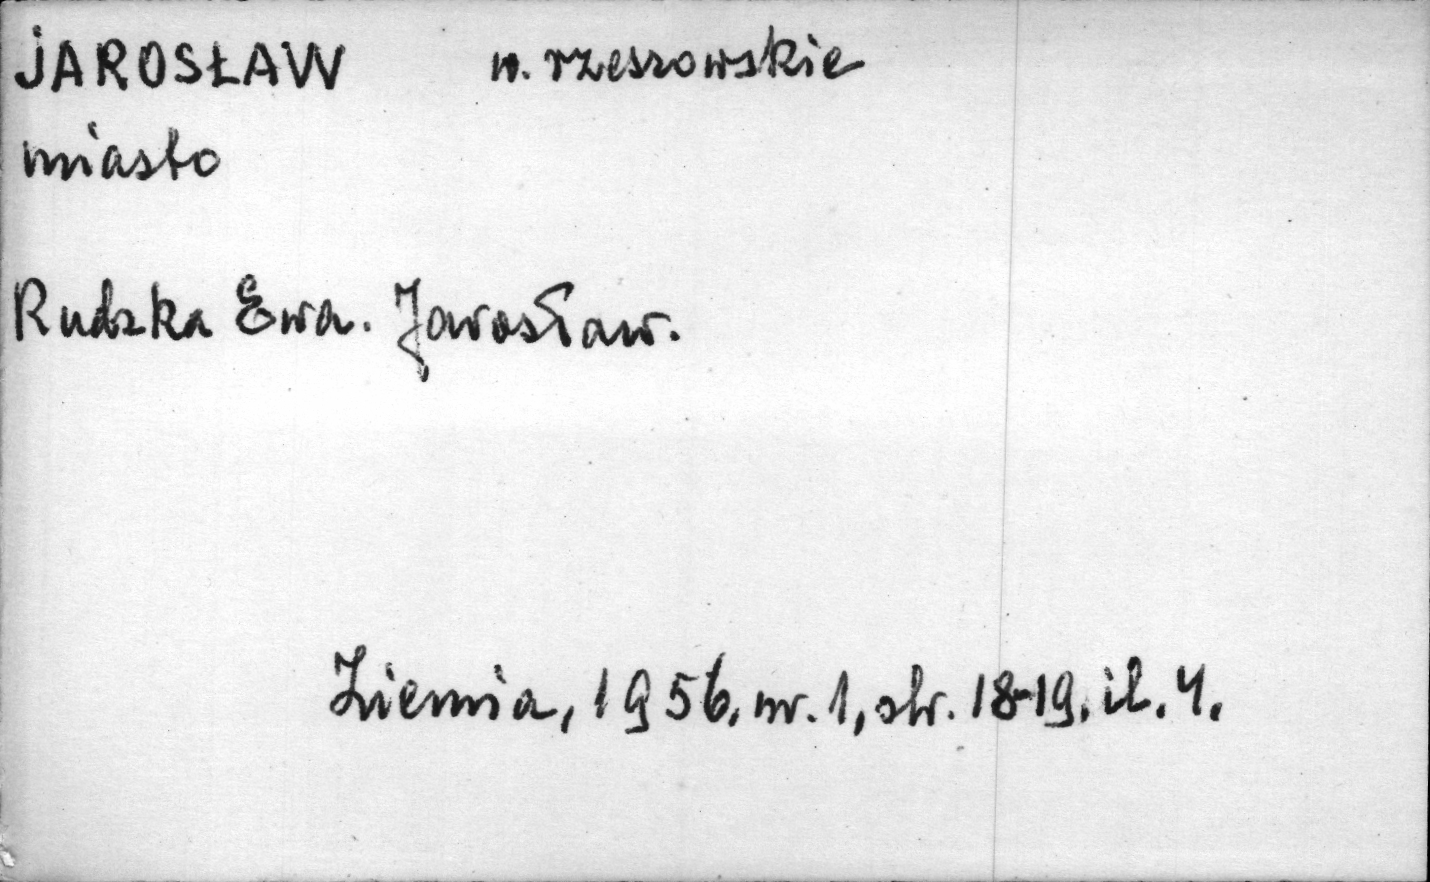 JAROSŁAW w. rzeszowskie
miasto
Rudzka Ewa. Jarosław.
Ziemia, 1956, nr. 1, str. 18-19, il. 4.